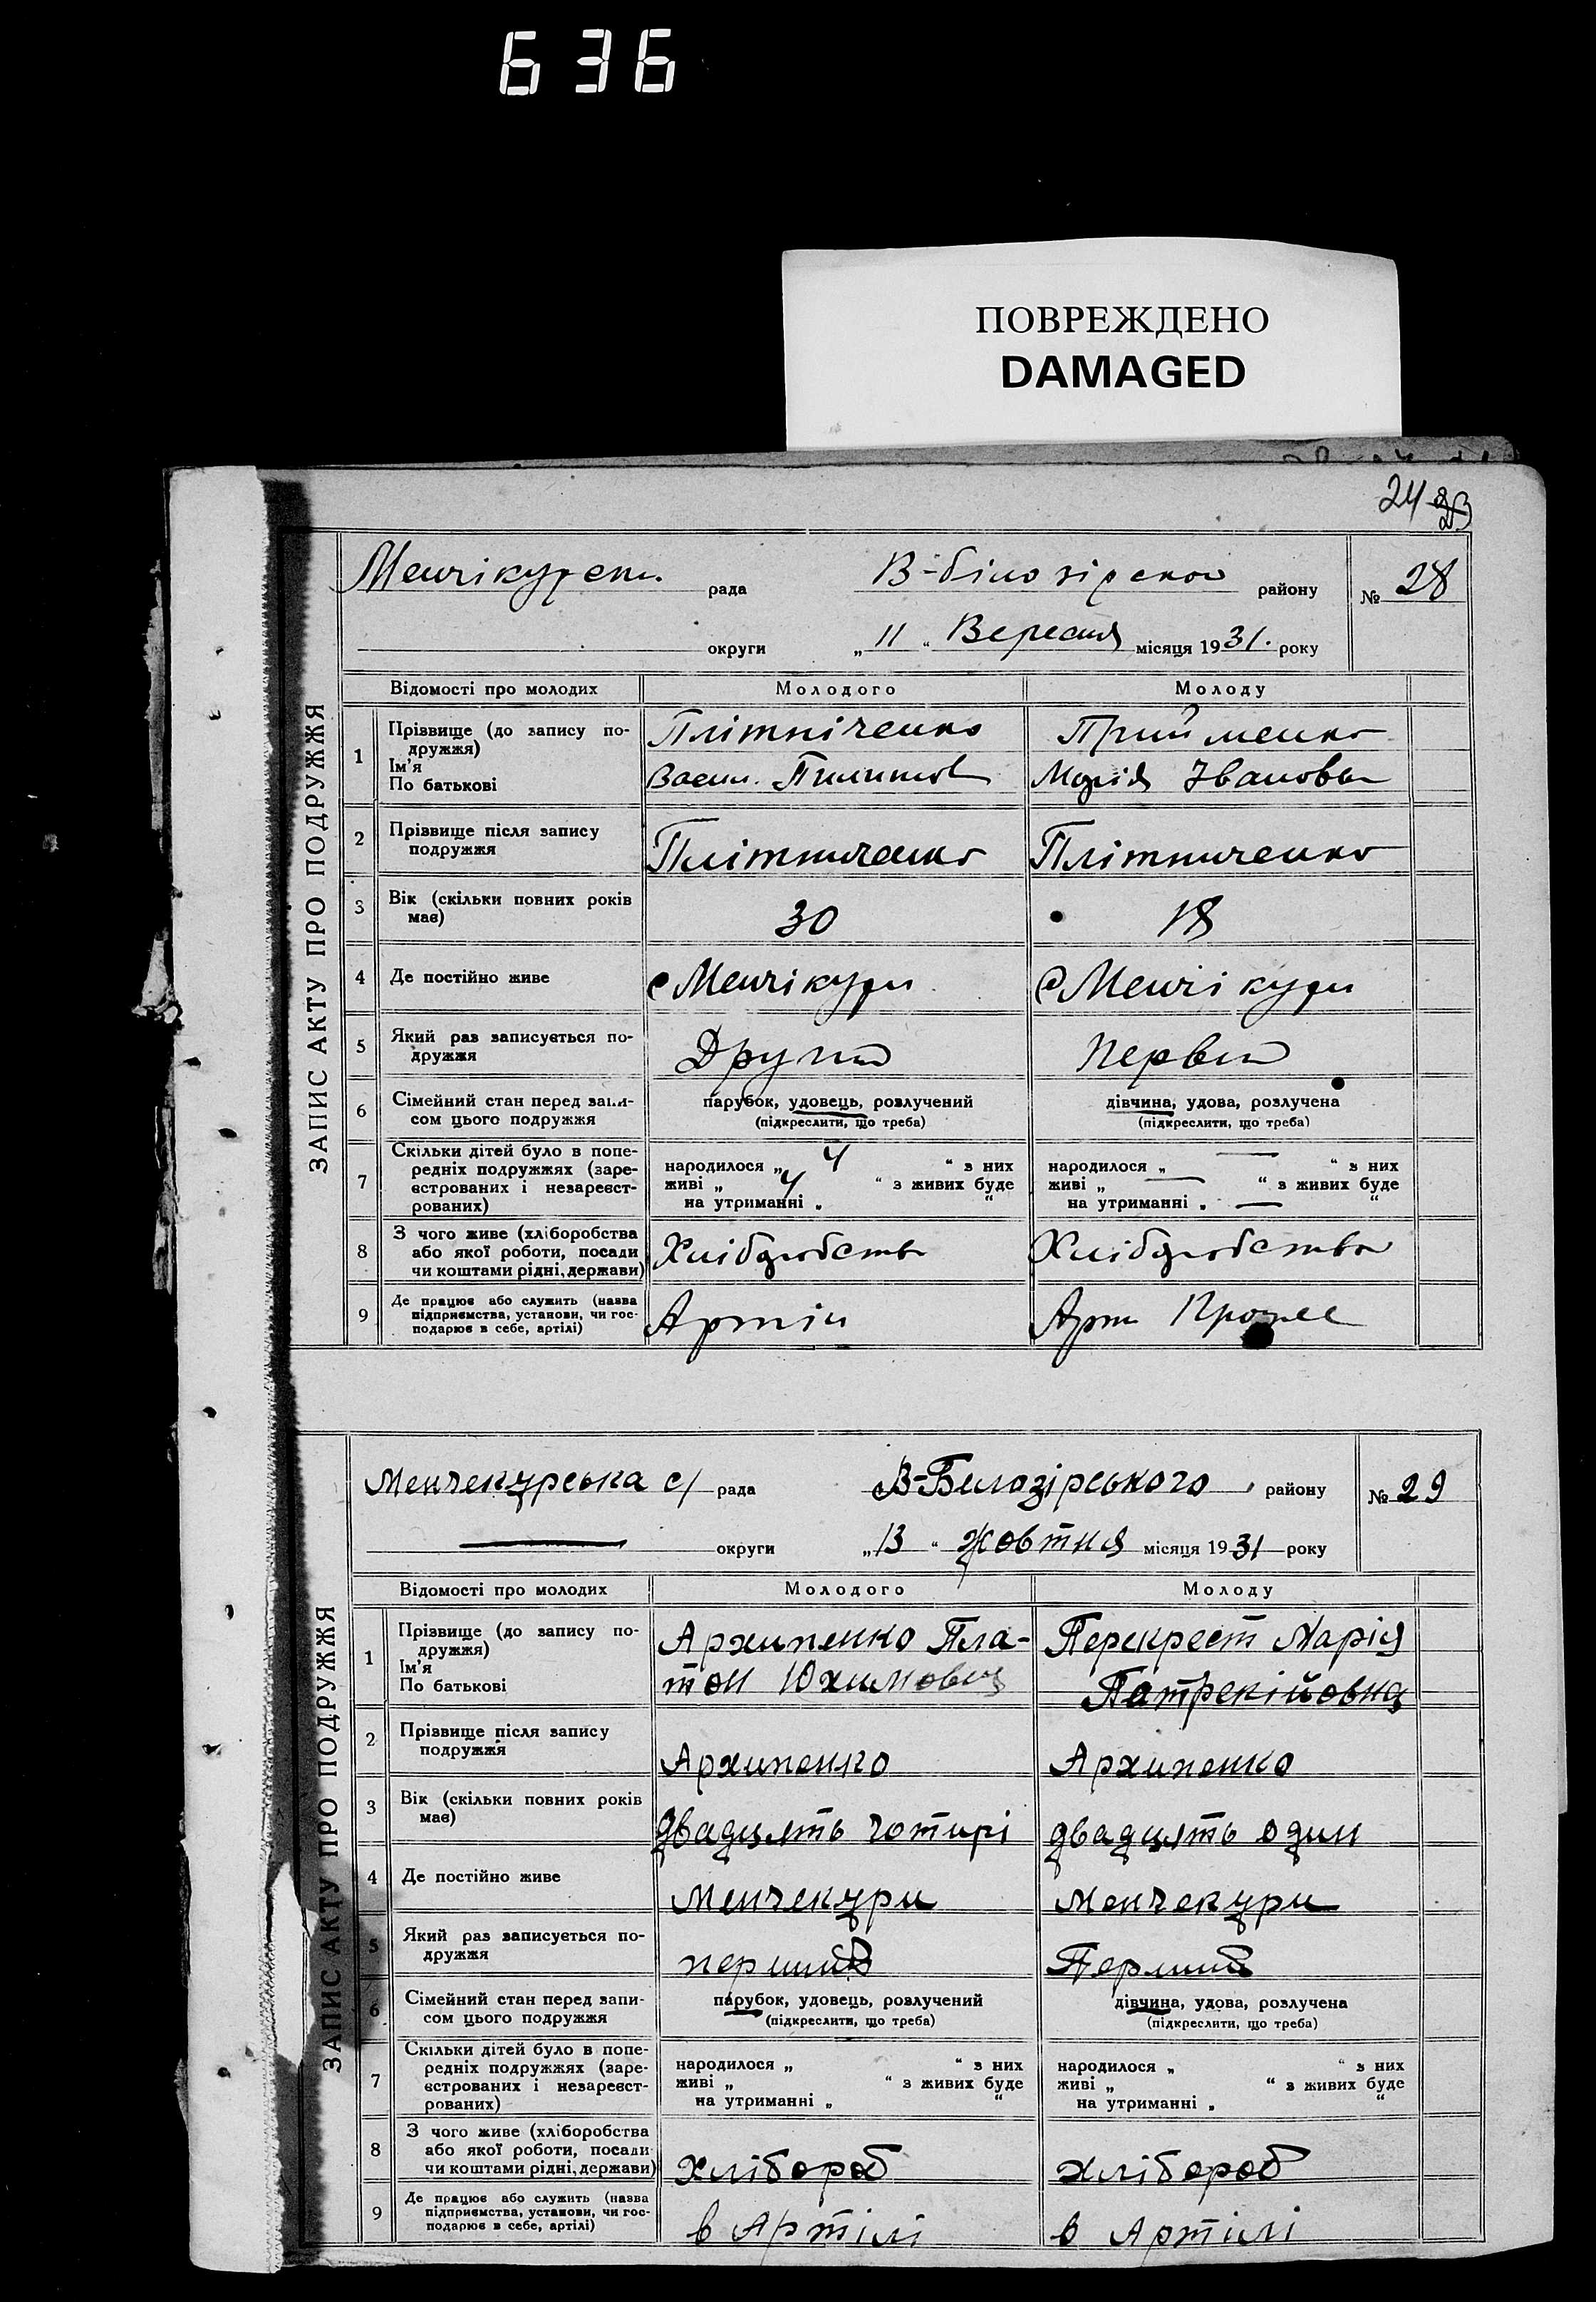 636
ПОВРЕЖДЕНО
DAMAGED
24
ЗАПИС АКТУ ПРО ПОДРУЖЖЯ
Менчікурськ. рада В-білозірского району № 28
округи „ 11 “ Вересня місяця 1931. року
Відомості про молодих Молодого Молоду
1 Прізвище (до запису по-
дружжя)
Ім’я
По батькові
Плітніченко Прийменко
Васил. Пилипов Марія Івановна
2 Прізвище після запису
подружжя
Плітниченко Плітниченко
3 Вік (скільки повних років
має)
30 18
4 Де постійно живе с Менчікури с Менчікури
5 Який раз записується по-
дружжя
Другий Первий
6 Сімейний стан перед запи-
сом цього подружжя
парубок, удовець, розлучений дівчина, удова, розлучена
(підкреслити, що треба) (підкреслити, що треба)
7 Скільки дітей було в попе-
редніх подружжях (заре-
єстрованих і незареєст-
рованих)
народилося „ 4 “ з них народилося „ — “ з них
живі „ 4 “ з живих буде живі „ — “ з живих буде
на утриманні „ “ на утриманні „ — “
8 З чого живе (хліборобства
або якої роботи, посади
чи коштами рідні, держави)
Хлібдробство Хлібдробство
9 Де працює або служить (назва
підприємства, установи, чи гос-
подарює в себе, артілі)
Артіли Арт
ЗАПИС АКТУ ПРО ПОДРУЖЖЯ
Менчекурська с/ рада В-Белозірського району № 29
— округи „ 13 “ Жовтня місяця 1931 року
Відомості про молодих Молодого Молоду
1 Прізвище (до запису по-
дружжя)
Ім’я
По батькові
Архипенко Пла- Перекрест Марія
тон Юхимович Патрекійовна
2 Прізвище після запису
подружжя
Архипенко Архипенко
3 Вік (скільки повних років
має)
двадцять чотирі двадцять один
4 Де постійно живе Менчекури Менчекури
5 Який раз записується по-
дружжя
перший Перший
6 Сімейний стан перед запи-
сом цього подружжя
парубок, удовець, розлучений дівчина, удова, розлучена
(підкреслити, що треба) (підкреслити, що треба)
7 Скільки дітей було в попе-
редніх подружжях (заре-
єстрованих і незареєст-
рованих)
народилося „ “ з них народилося „ “ з них
живі „ “ з живих буде живі „ “ з живих буде
на утриманні „ “ на утриманні „ “
8 З чого живе (хліборобства
або якої роботи, посади
чи коштами рідні, держави)
хлібороб хлібороб
9 Де працює або служить (назва
підприємства, установи, чи гос-
подарює в себе, артілі)
в Артілі в Артилі